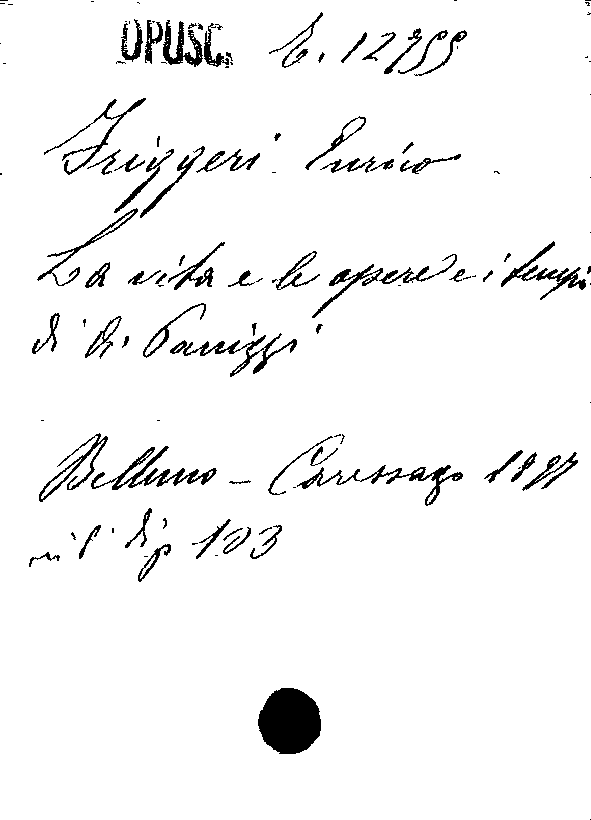 OPUSC. E. 12755
Friggeri Enrico
La vita e le opere e i tempi
di A. Panizzi
Belluno - Cavessago 1897
in 8° di p 103